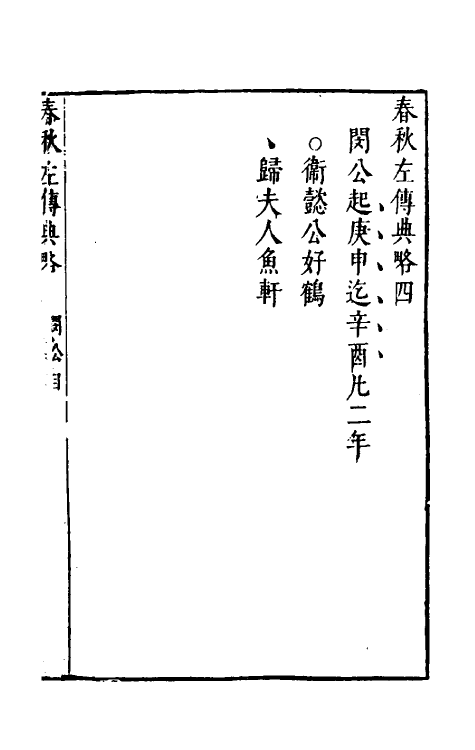 春秋左傳典略四
閔公起庚申迄辛酉凡二年
○衞懿公好鶴
、歸夫人魚軒
春秋左傳典略 閔公目